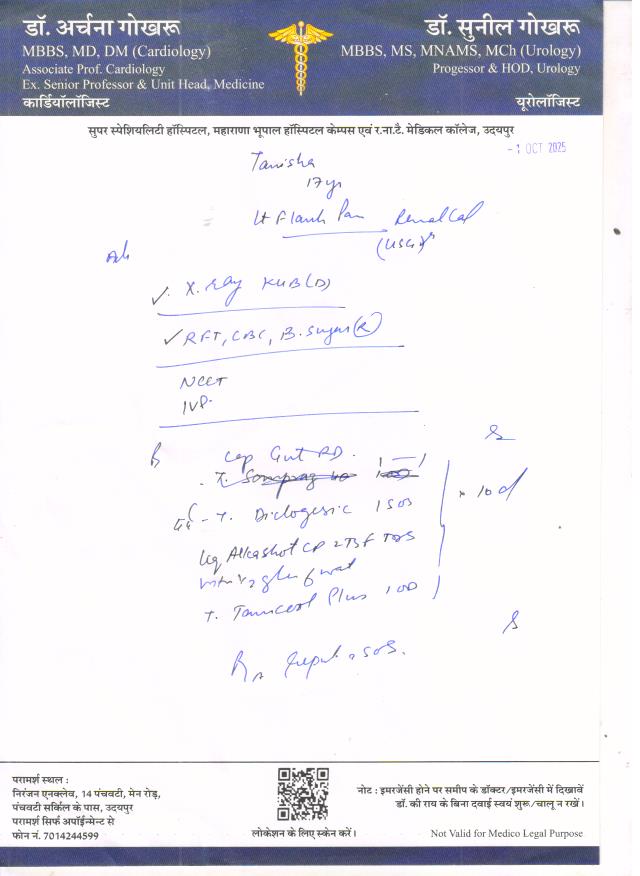 डॉ. अर्चना गोखरू
MBBS, MD, DM (Cardiology)
Associate Prof. Cardiology
Ex. Senior Professor & Unit Head, Medicine
कार्डियॉलॉजिस्ट
डॉ. सुनील गोखरू
MBBS, MS, MNAMS, MCh (Urology)
Progessor & HOD, Urology
यूरोलॉजिस्ट
सुपर स्पेशियलिटी हॉस्पिटल, महाराणा भूपाल हॉस्पिटल केम्पस एवं र.ना.टै. मेडिकल कॉलेज, उदयपुर
-1 OCT 2025
Tanisha
17 yr
Lt Flank Pain Renal Cal
(USG)
X. Ray KUB (D)
RFT, CBC, B. Sugar (R)
NCCT
IVP
Cap Gut RD. 1-1
T. 40
T. Diclogesic 1 SOS
x 10 d
Liq Alkashot CP 2TSF TDS
1/2 glass wat
T. Plus 1 OD
SOS.
परामर्श स्थल :
निरंजन एनक्लेव, 14 पंचवटी, मेन रोड़,
पंचवटी सर्किल के पास, उदयपुर
परामर्श सिर्फ अपॉईन्मेन्ट से
फोन नं. 7014244599
लोकेशन के लिए स्केन करें।
नोट : इमरजेंसी होने पर समीप के डॉक्टर/इमरजेंसी में दिखावें
डॉ. की राय के बिना दवाई स्वयं शुरू/चालू न रखें।
Not Valid for Medico Legal Purpose